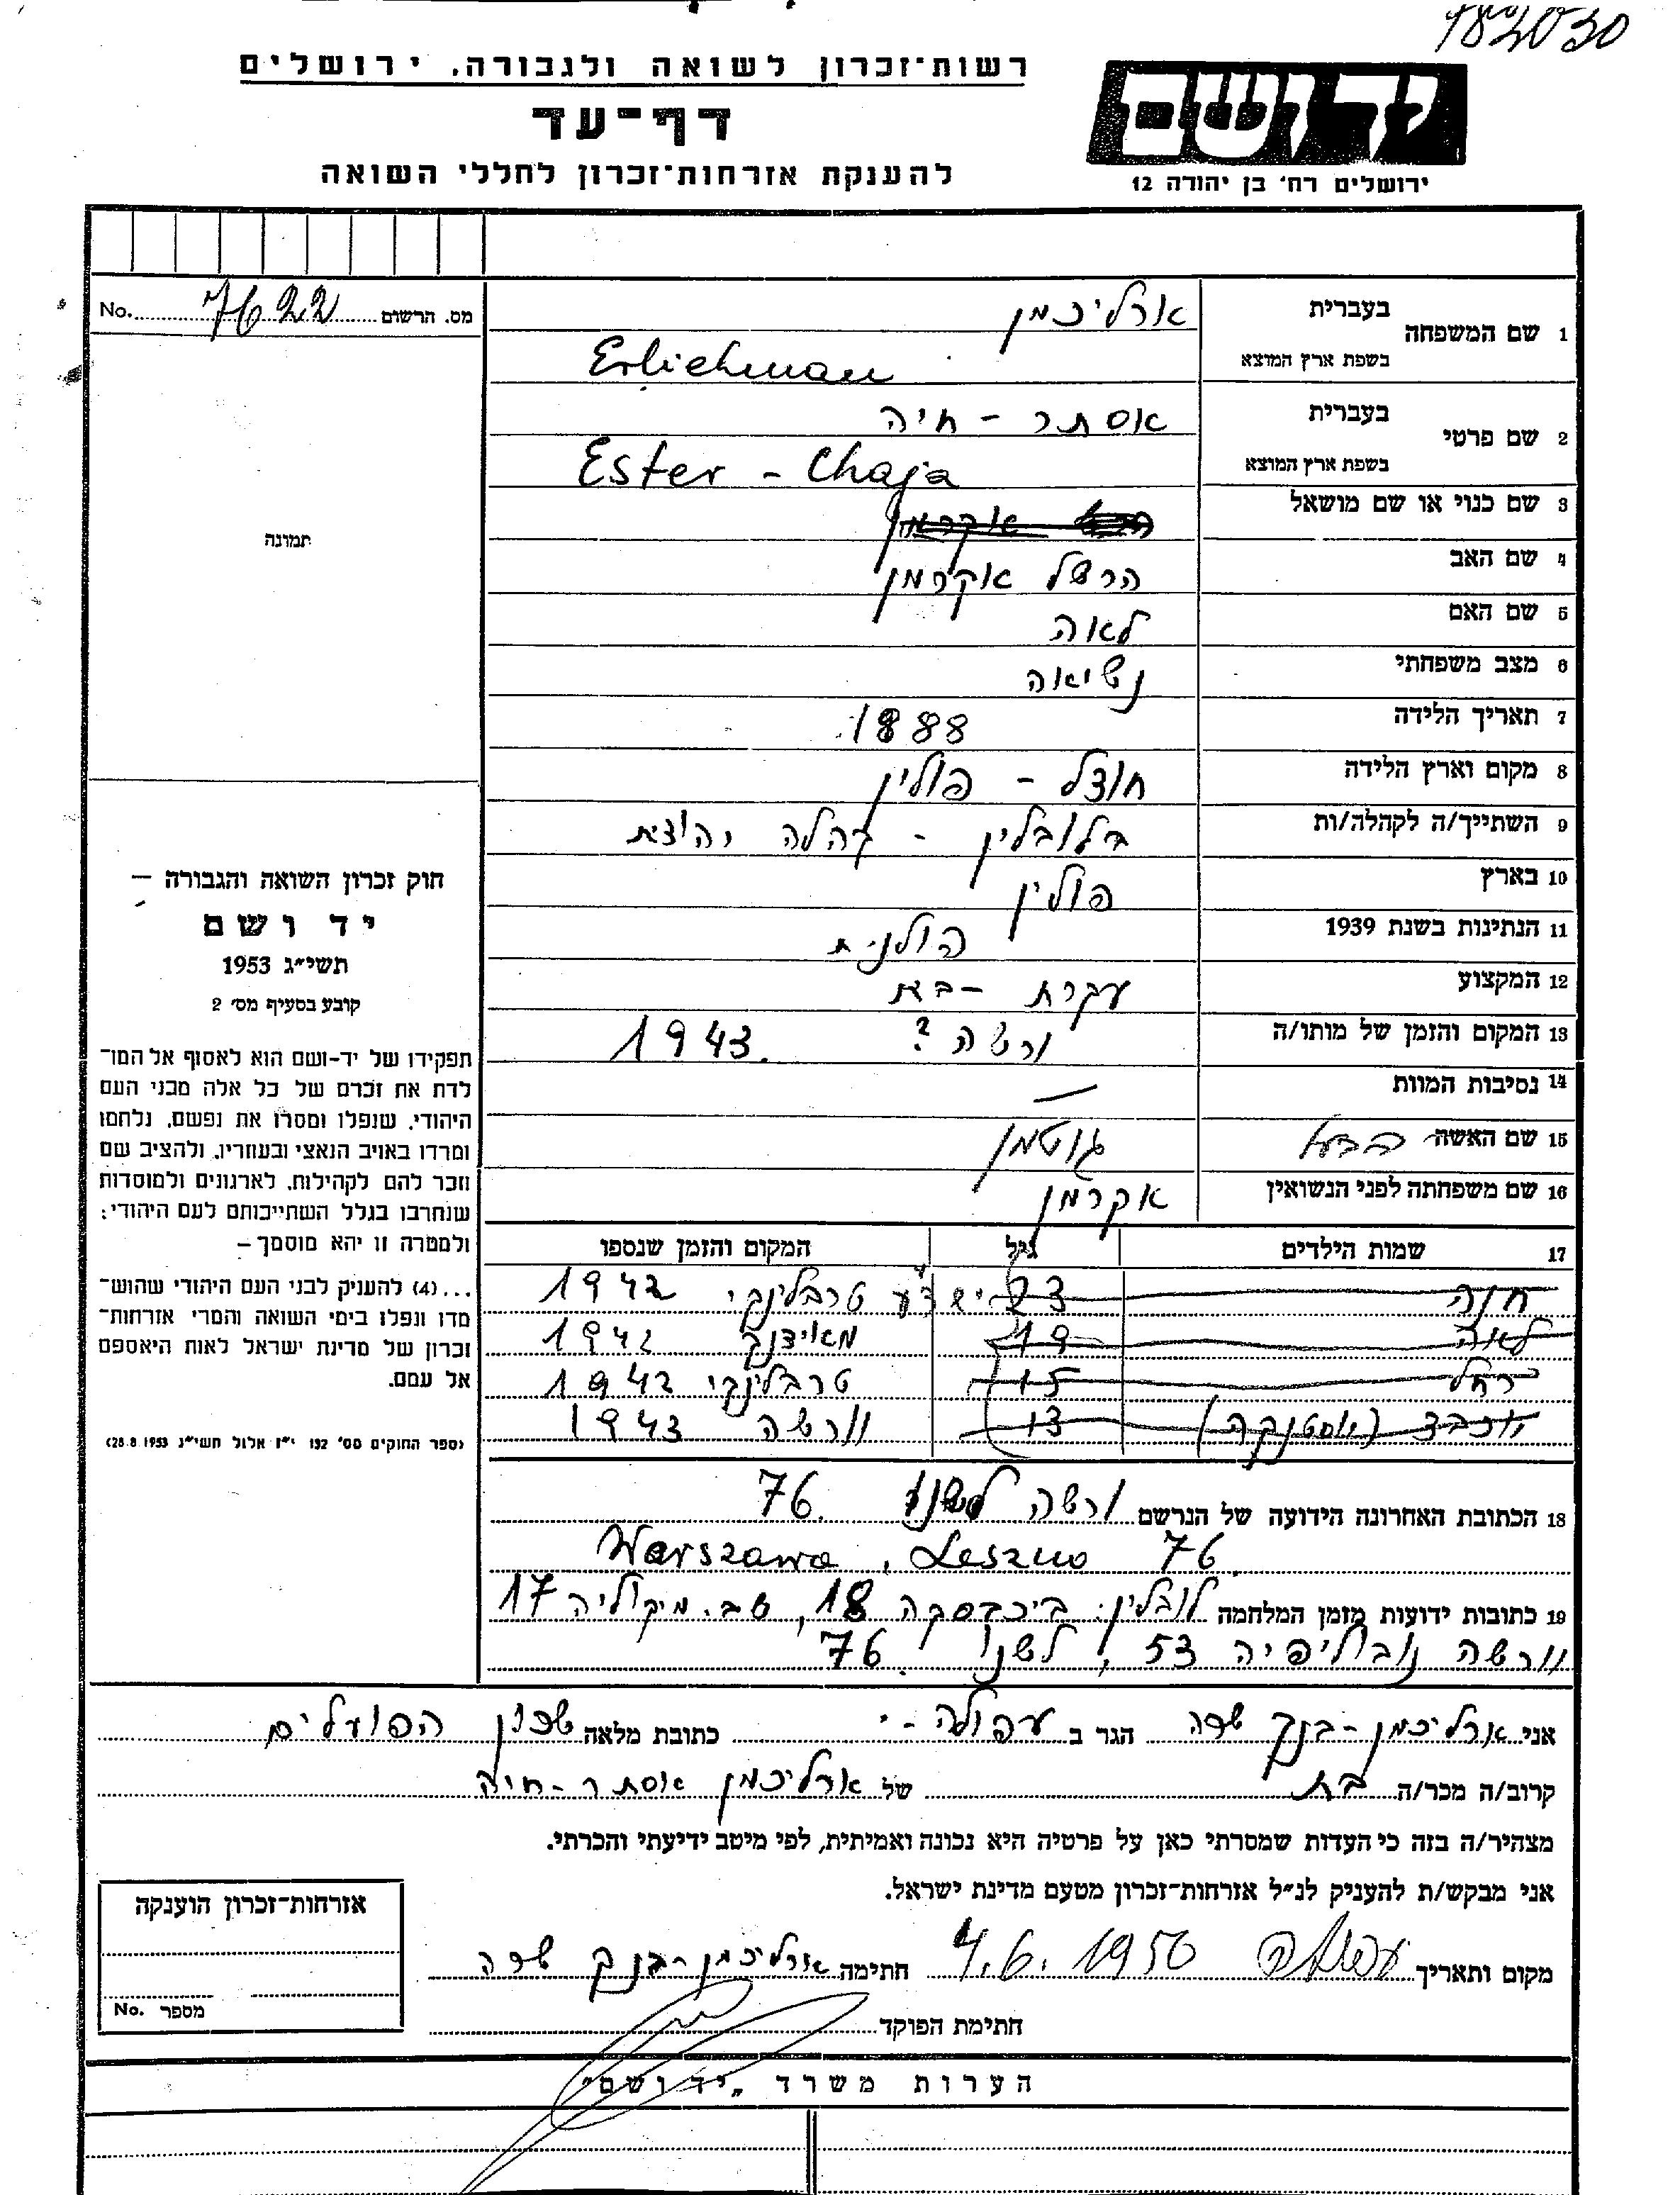 183030
רשות־זכרון לשואה ולגבורה. ירושלים
דף־עד
להענקת אזרחות־זכרון לחללי השואה
יד ושם
ירושלים רח' בן יהודה 12
מס. הרשום 7622 No.
תמונה
חוק זכרון השואה והגבורה —
יד ושם
תשי״ג 1953
קובע בסעיף מס' 2
תפקידו של יד-ושם הוא לאסוף אל המו־
לדת את זכרם של כל אלה מבני העם
היהודי, שנפלו ומסרו את נפשם, נלחמו
ומרדו באויב הנאצי ובעוזריו, ולהציב שם
וזכר להם לקהילות, לארגונים ולמוסדות
שנחרבו בגלל השתייכותם לעם היהודי;
ולמטרה זו יהא מוסמך —
...(4) להעניק לבני העם היהודי שהוש־
מדו ונפלו בימי השואה והמרי אזרחות־
זכרון של מדינת ישראל לאות היאספם
אל עמם.
(ספר החוקים מס' 132 י״ז אלול תשי״ג 28.8.1953)
1 שם המשפחה בעברית ארליכמן
בשפת ארץ המוצא Erlichman
2 שם פרטי בעברית אסתר - חיה
בשפת ארץ המוצא Ester - Chaja
3 שם כנוי או שם מושאל אקרמן
4 שם האב הרשל אקרמן
5 שם האם לאה
6 מצב משפחתי נשיאה
7 תאריך הלידה 1888
8 מקום וארץ הלידה חוצל - פולין
9 השתייך/ה לקהלה/ות בלובלין - קהלה
10 בארץ פולין
11 הנתינות בשנת 1939 פולנית
12 המקצוע עקרת - בית
13 המקום והזמן של מותו/ה ורשה ? 1943
14 נסיבות המוות —
15 שם האשה הבעל גוטמן
16 שם משפחתה לפני הנשואין אקרמן
17 שמות הילדים גיל המקום והזמן שנספו
חנה 23 טרבלינקי 1942
לאה 19 מאידנק 1942
רחל 15 טרבלינקי 1942
יוכבד 13 וורשה 1943
18 הכתובת האחרונה הידועה של הנרשם ורשה לשנו 76
Warszawa, Leszno 76
19 כתובות ידועות מזמן המלחמה לובלין: 18, 17
וורשה נובוליפיה 53, לשנו 76
אני ארליכמן-בנק שרה הגר ב עפולה - י כתובת מלאה שכון הפועלים
קרוב/ה מכר/ה בת של ארליכמן אסתר-חיה
מצהיר/ה בזה כי העדות שמסרתי כאן על פרטיה היא נכונה ואמיתית, לפי מיטב ידיעתי והכרתי.
אני מבקש/ת להעניק לנ״ל אזרחות־זכרון מטעם מדינת ישראל.
מקום ותאריך עפולה 4.6.1956 חתימה ארליכמן-בנק שרה
חתימת הפוקד
אזרחות־זכרון הוענקה
מספר No.
הערות משרד „יד ושם״